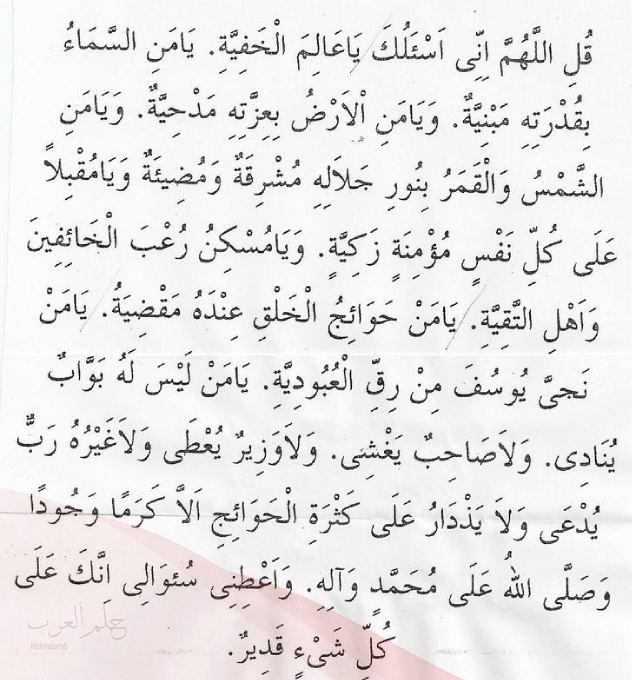 قُلِ اللَّهُمَّ اِنِّى اَسْئَلُكَ يَاعَالِمَ الْخَفِيَّةِ. يَامَنِ السَّمَاءُ
بِقُدْرَتِهِ مَبْنِيَّةٌ. وَيَامَنِ اْلاَرْضُ بِعِزَّتِهِ مَدْحِيَّةٌ. وَيَامَنِ
الشَّمْسُ وَالْقَمَرُ بِنُورِ جَلاَلِهِ مُشْرِقَةٌ وَمُضِيئَةٌ وَيَامُقْبِلاً
عَلَى كُلِّ نَفْسٍ مُؤْمِنَةٍ زَكِيَّةٍ. وَيَامُسْكِنُ رُعْبَ الْخَائِفِينَ
وَاَهْلِ التَّقِيَّةِ. يَامَنْ حَوَائِجُ الْخَلْقِ عِنْدَهُ مَقْضِيَةُ. يَامَنْ
نَجىَّ يُوسُفَ مِنْ رِقِّ الْعُبُودِيَّةِ. يَامَنْ لَيْسَ لَهُ بَوَّابٌ
يُنَادِى. وَلاَصَاحِبٌ يَغْشِى. وَلاَوَزِيرٌ يُعْطَى وَلاَغَيْرُهُ رَبٌّ
يُدْعَى وَلاَ يَذْدَارُ عَلَى كَثْرَةِ الْحَوَائِجِ اَلاَّ كَرَمًا وَجُودًا
وَصَلَّى اللهُ عَلَى مُحَمَّدٍ وَآلِهِ. وَاَعْطِنِى سُئوَالِى اِنَّكَ عَلَى
كُلِّ شَىْءٍ قَدِيرٌ.
حلم العرب
Helmelarab